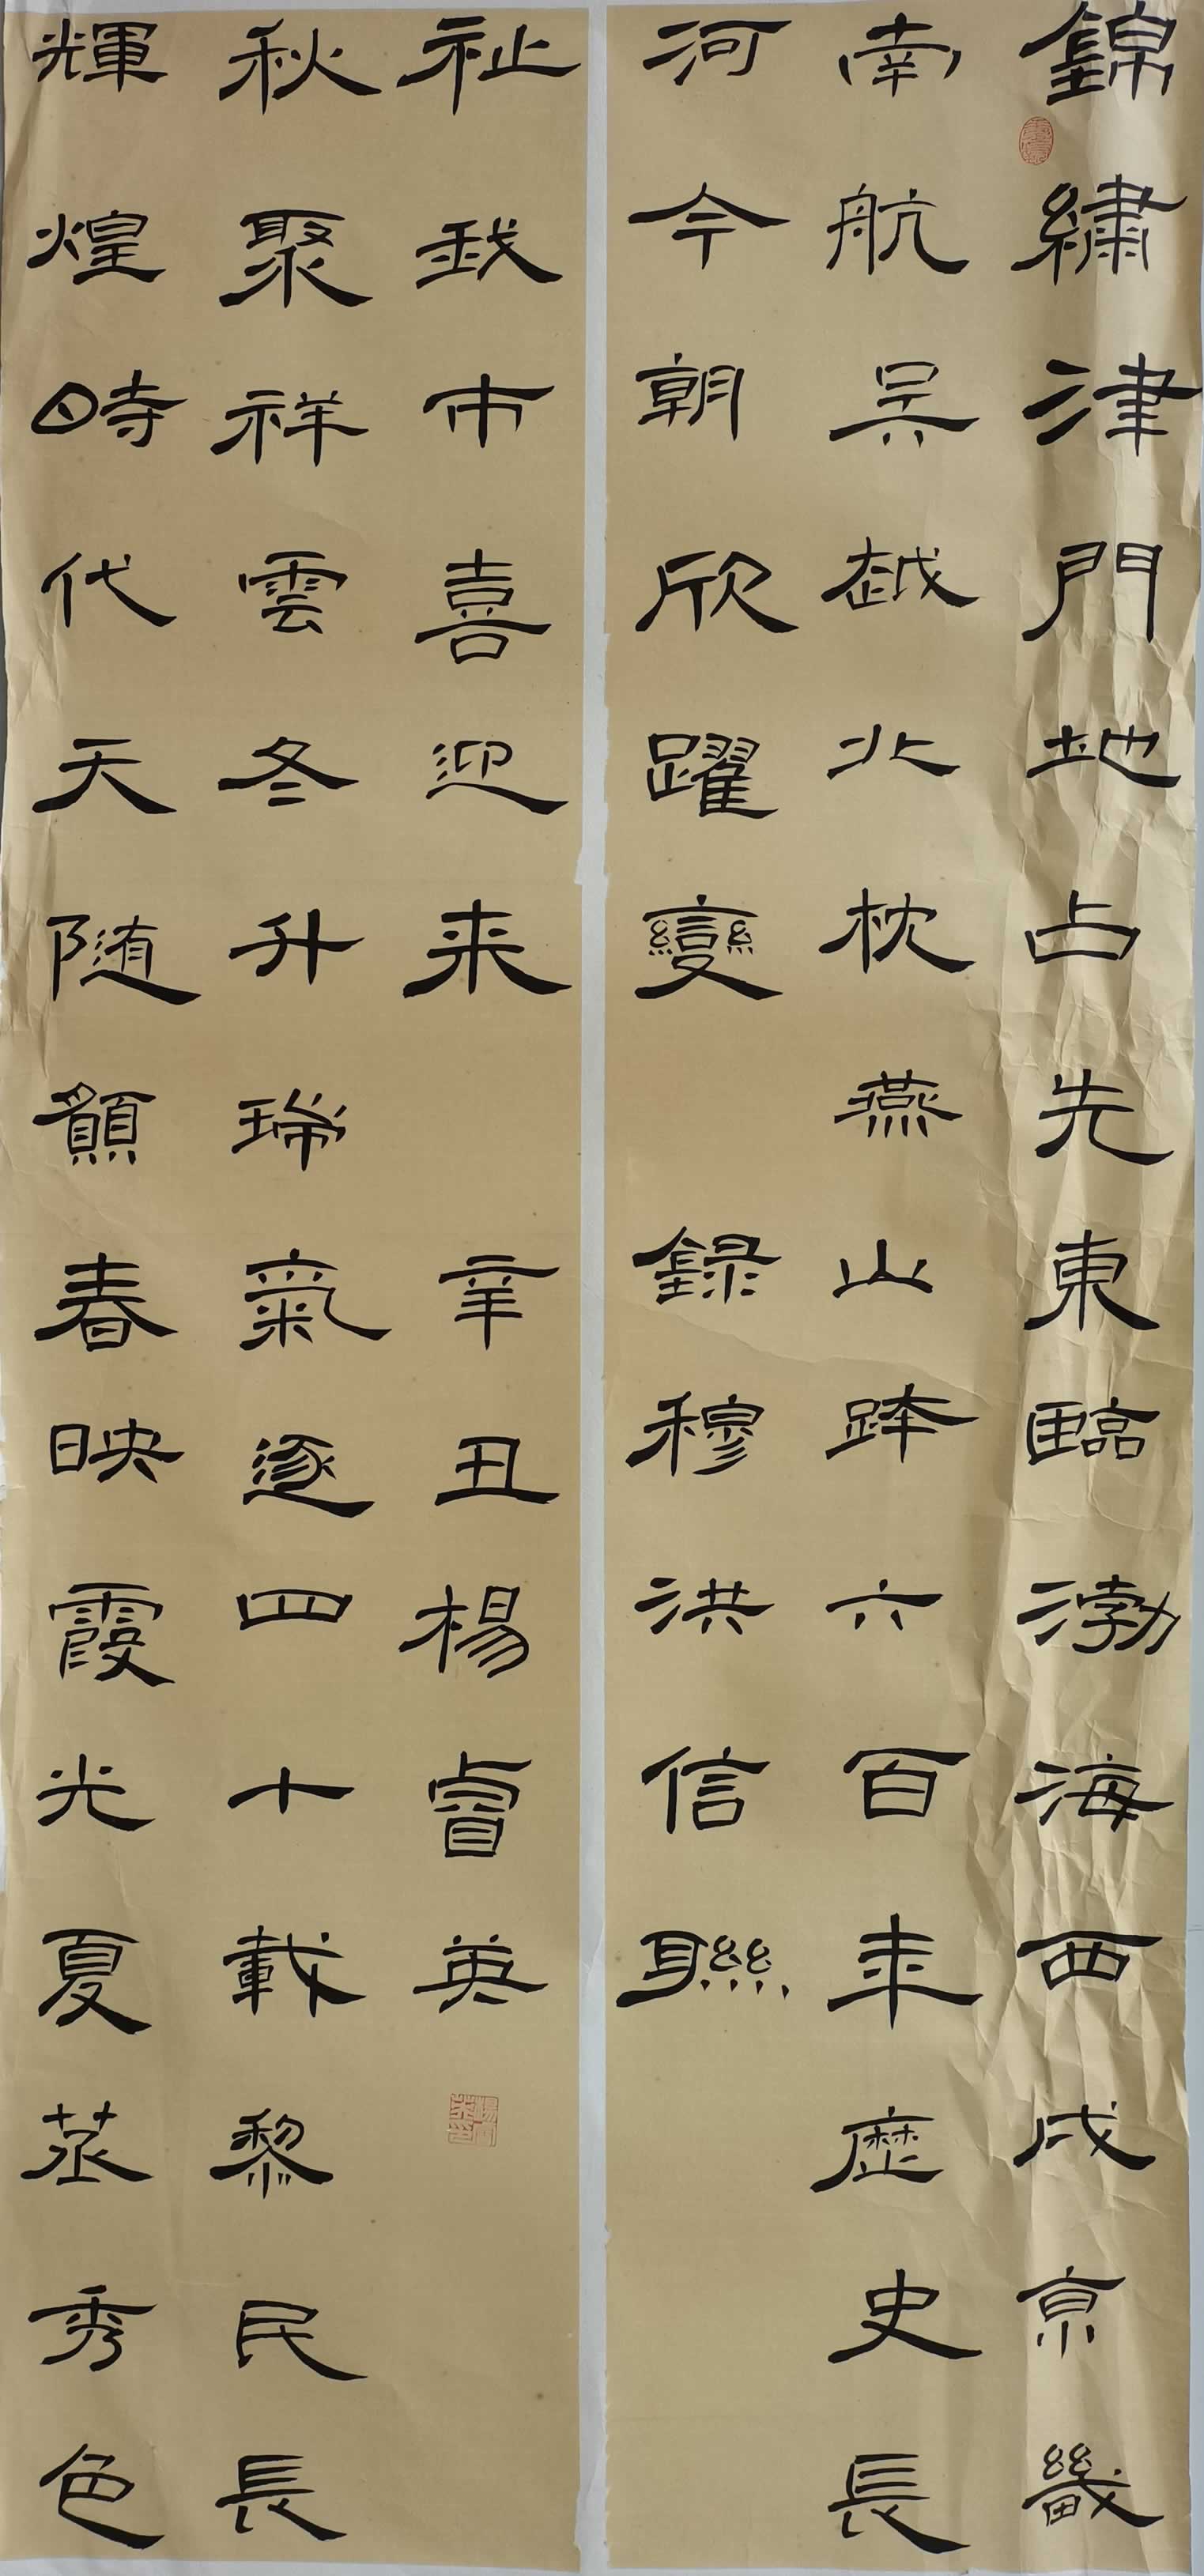 錦繡津門地占先東臨渤海西戍京畿
南航吴越北枕燕山跨六百年歷史長
河今朝欣躍變 錄穆洪信聯
輝煌時代天随願春映霞光夏蒸秀色
秋聚祥雲冬升瑞氣逐四十載黎民長
祉我市喜迎来 辛丑楊睿英